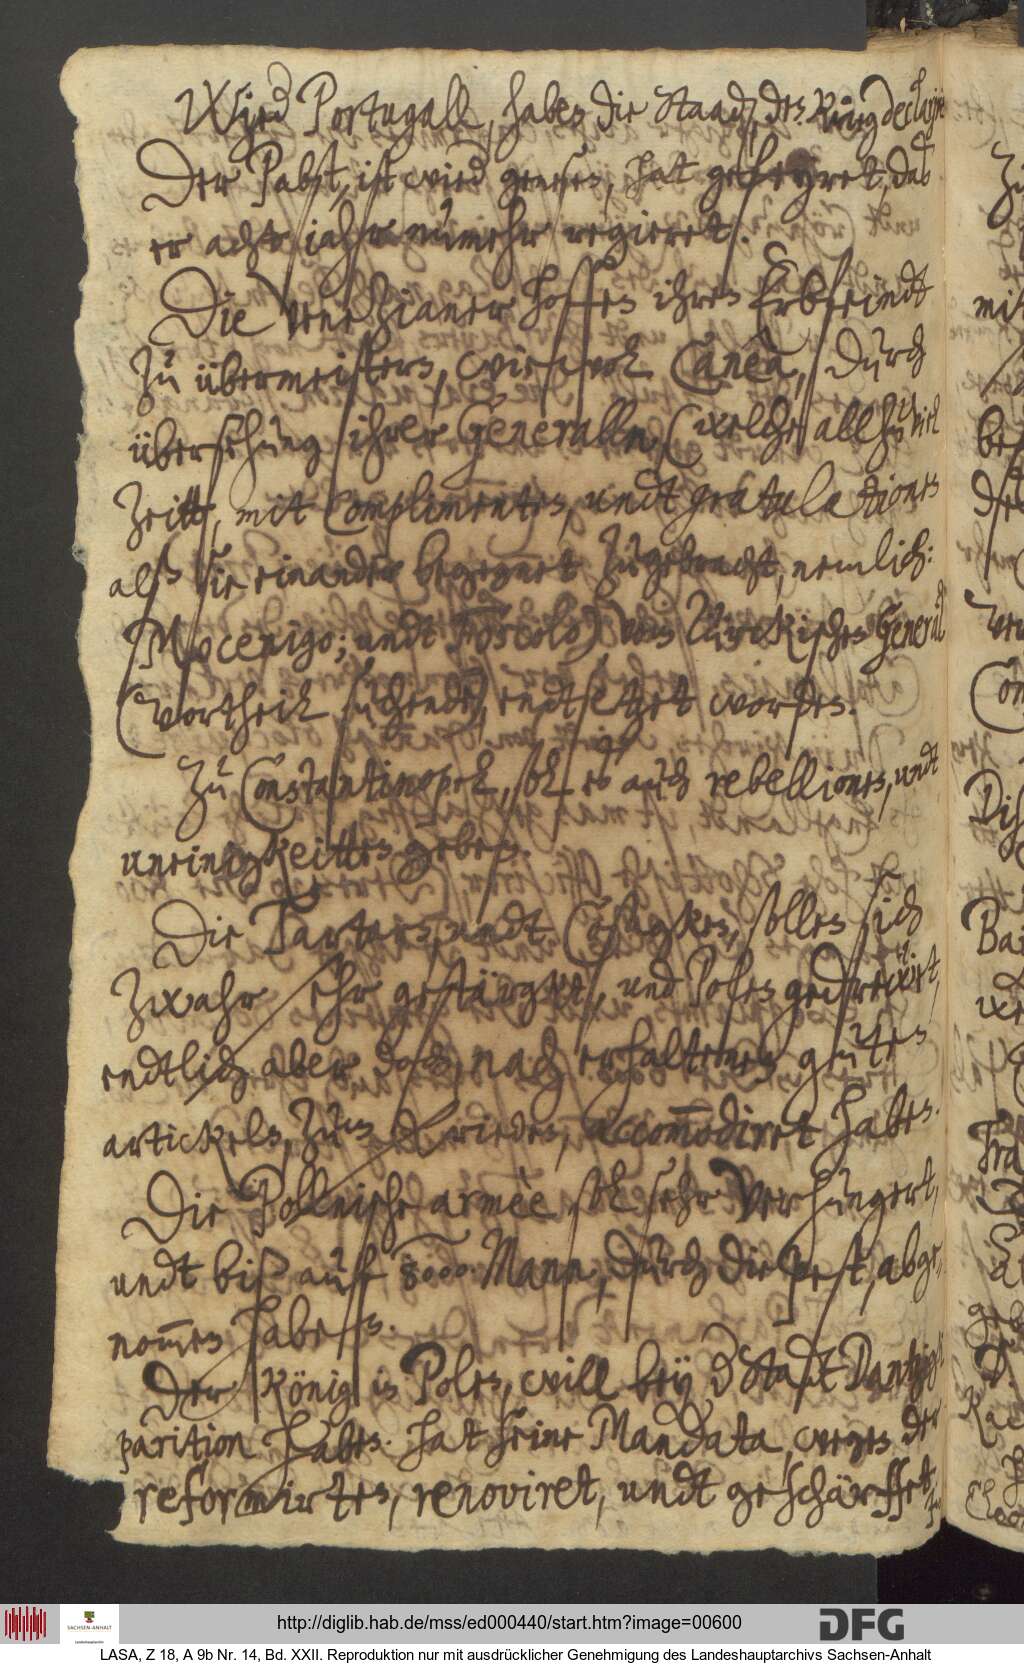 Wied Portugall, haben die Staad, den Krieg declarirt
Der Pabst, ist wied genesen, hat gefeyret, das
er acht iahr nunmehr regieret.
Die Venetzianer hoffen ihren Erbfeindt
zu übermeistern, wiewol Canea, durch
übersehung ihrer Generallen (welche allzu viel
Zeitt, mit Complimenten, undt gratulationen
alß sie einander begegnet zugebracht, nemlich:
Mocenigo; undt Foscolo) vom Türckischen General
Vortheil suchende, endtsetzet worden.
Zu Constantinopel, sol es auch rebellionen, undt
uneinigkeitten geben.
Die Tartarn, undt Cosagken, sollen sich
zwahr sehr gestärgket, und Polen gedrewet,
endtlich aber doch, nach erhaltenen guten
artickeln, zum Frieden, accom̄odiret haben.
Die Pollnische armèe sol sehr verhungert,
undt biß auf 8000. Mann, durch die pest, abge¬
nom̄en haben.
Der König in Polen, will bey d Stadt Dantzigk
parition haben. hat seine Mandata, wegen der
reformirten, renoviret, undt geschärffet,
http://diglib.hab.de/mss/ed000440/start.htm?image=00600
DFG
SACHSEN-ANHALT
LASA, Z 18, A 9b Nr. 14, Bd. XXII. Reproduktion nur mit ausdrücklicher Genehmigung des Landeshauptarchivs Sachsen-Anhalt